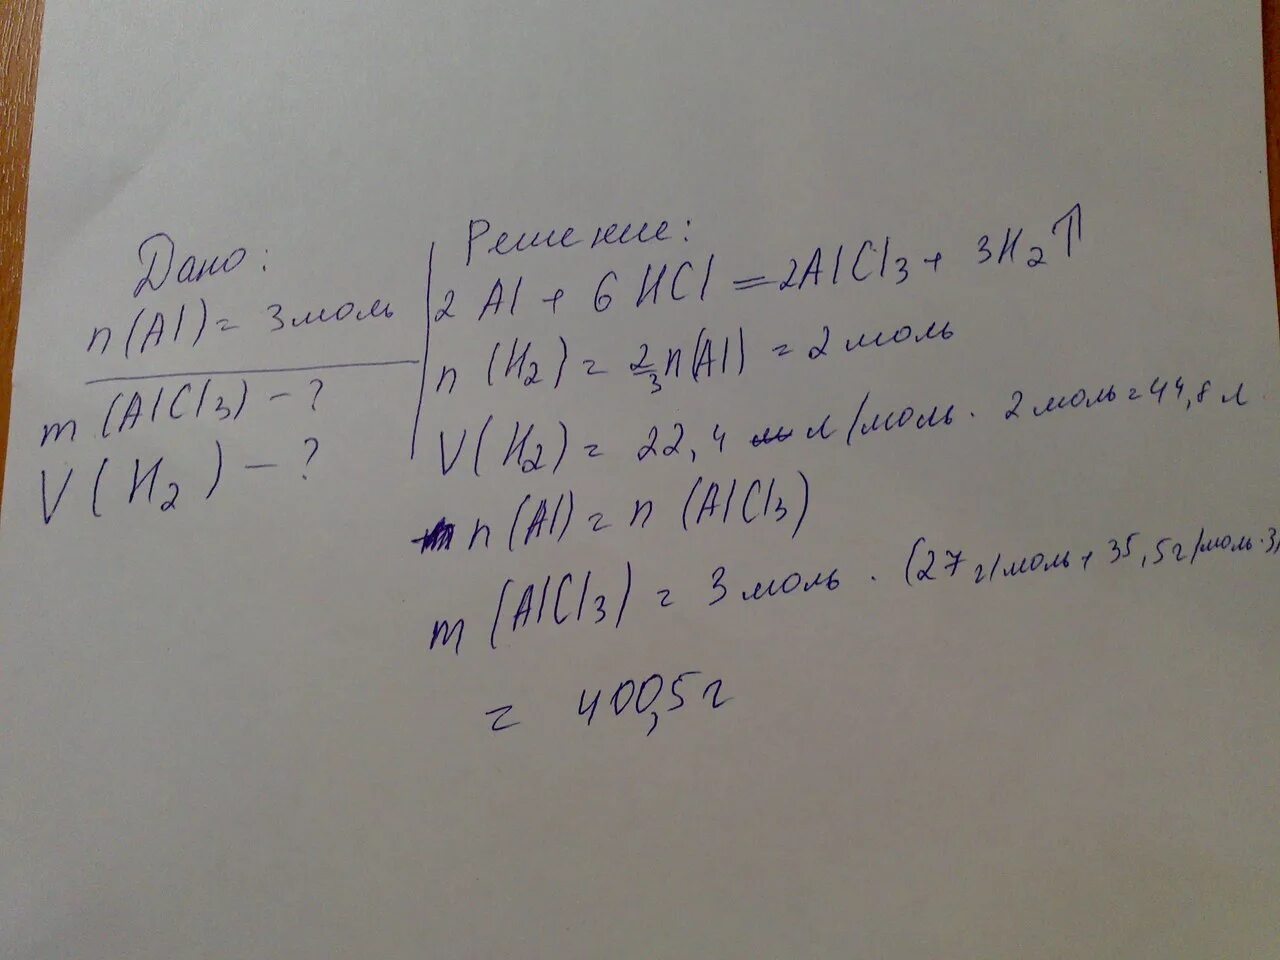 Дано:
n(Al) = 3 моль
m(AlCl₃) - ?
V(H₂) - ?
Решение:
2Al + 6HCl = 2AlCl₃ + 3H₂↑
n(H₂) = 2/3 n(Al) = 2 моль
V(H₂) = 22,4 л/моль · 2 моль = 44,8 л
n(Al) = n(AlCl₃)
m(AlCl₃) = 3 моль · (27 г/моль + 35,5 г/моль · 3)
= 400,5 г